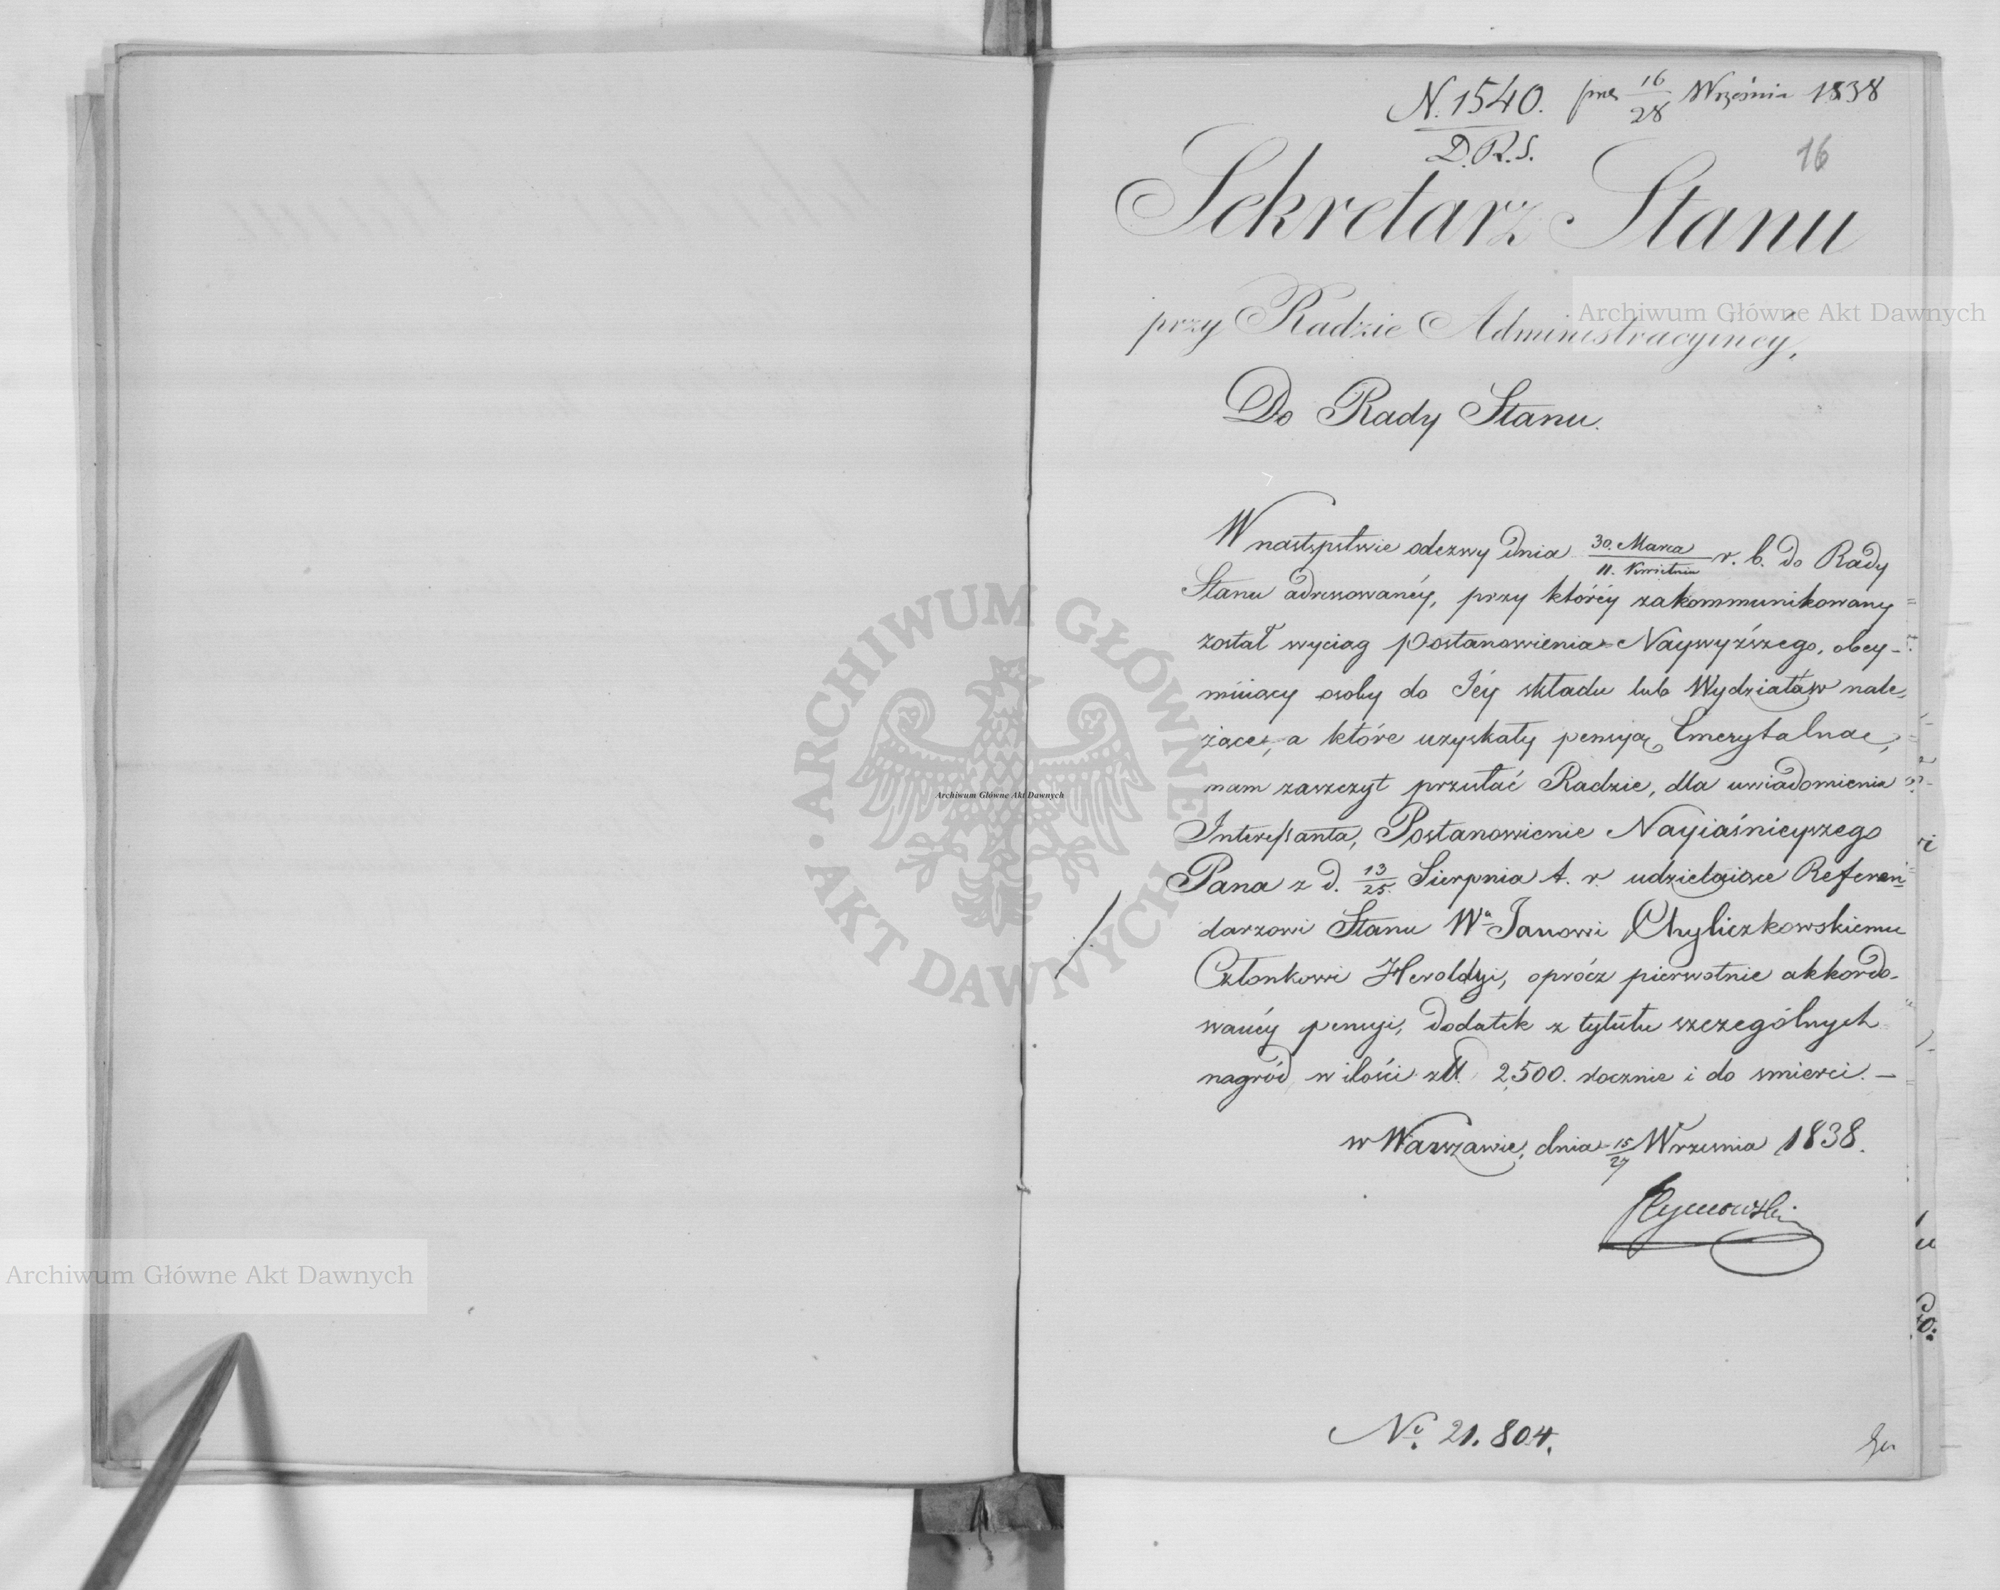 N. 1540. prez 16/28 Września 1838
D.R.S.
16
Sekretarz Stanu
przy Radzie Administracyiney,
Do Rady Stanu.
W następstwie odezwy dnia 30. Marca/11. Kwietnia r. b. do Rady
Stanu adressowanéy, przy któréy zakommunikowany
został wyciąg postanowienia Naywyższego, obey-
muiący osoby do Jéy składu lub Wydziałów nale-
żące, a które uzyskały pensyją Emerytalną,
mam zaszczyt przesłać Radzie, dla uwiadomienia
Interessanta, Postanowienie Nayiaśnieyszego
Pana z d. 13/25. Sierpnia t. r. udzielaiące Referen-
darzowi Stanu Wu Janowi Chyliczkowskiemu
Członkowi Heroldyi, oprócz pierwotnie akkordo-
wanéy pensyi, dodatek z tytułu szczególnych
nagród w ilości złł. 2,500. rocznie i do smierci. —
w Warszawie, dnia 15/27 Wrzesnia 1838.
Hymowski
No. 21.804.
Archiwum Główne Akt Dawnych
Archiwum Główne Akt Dawnych
Archiwum Główne Akt Dawnych
ARCHIWUM GŁÓWNE AKT DAWNYCH